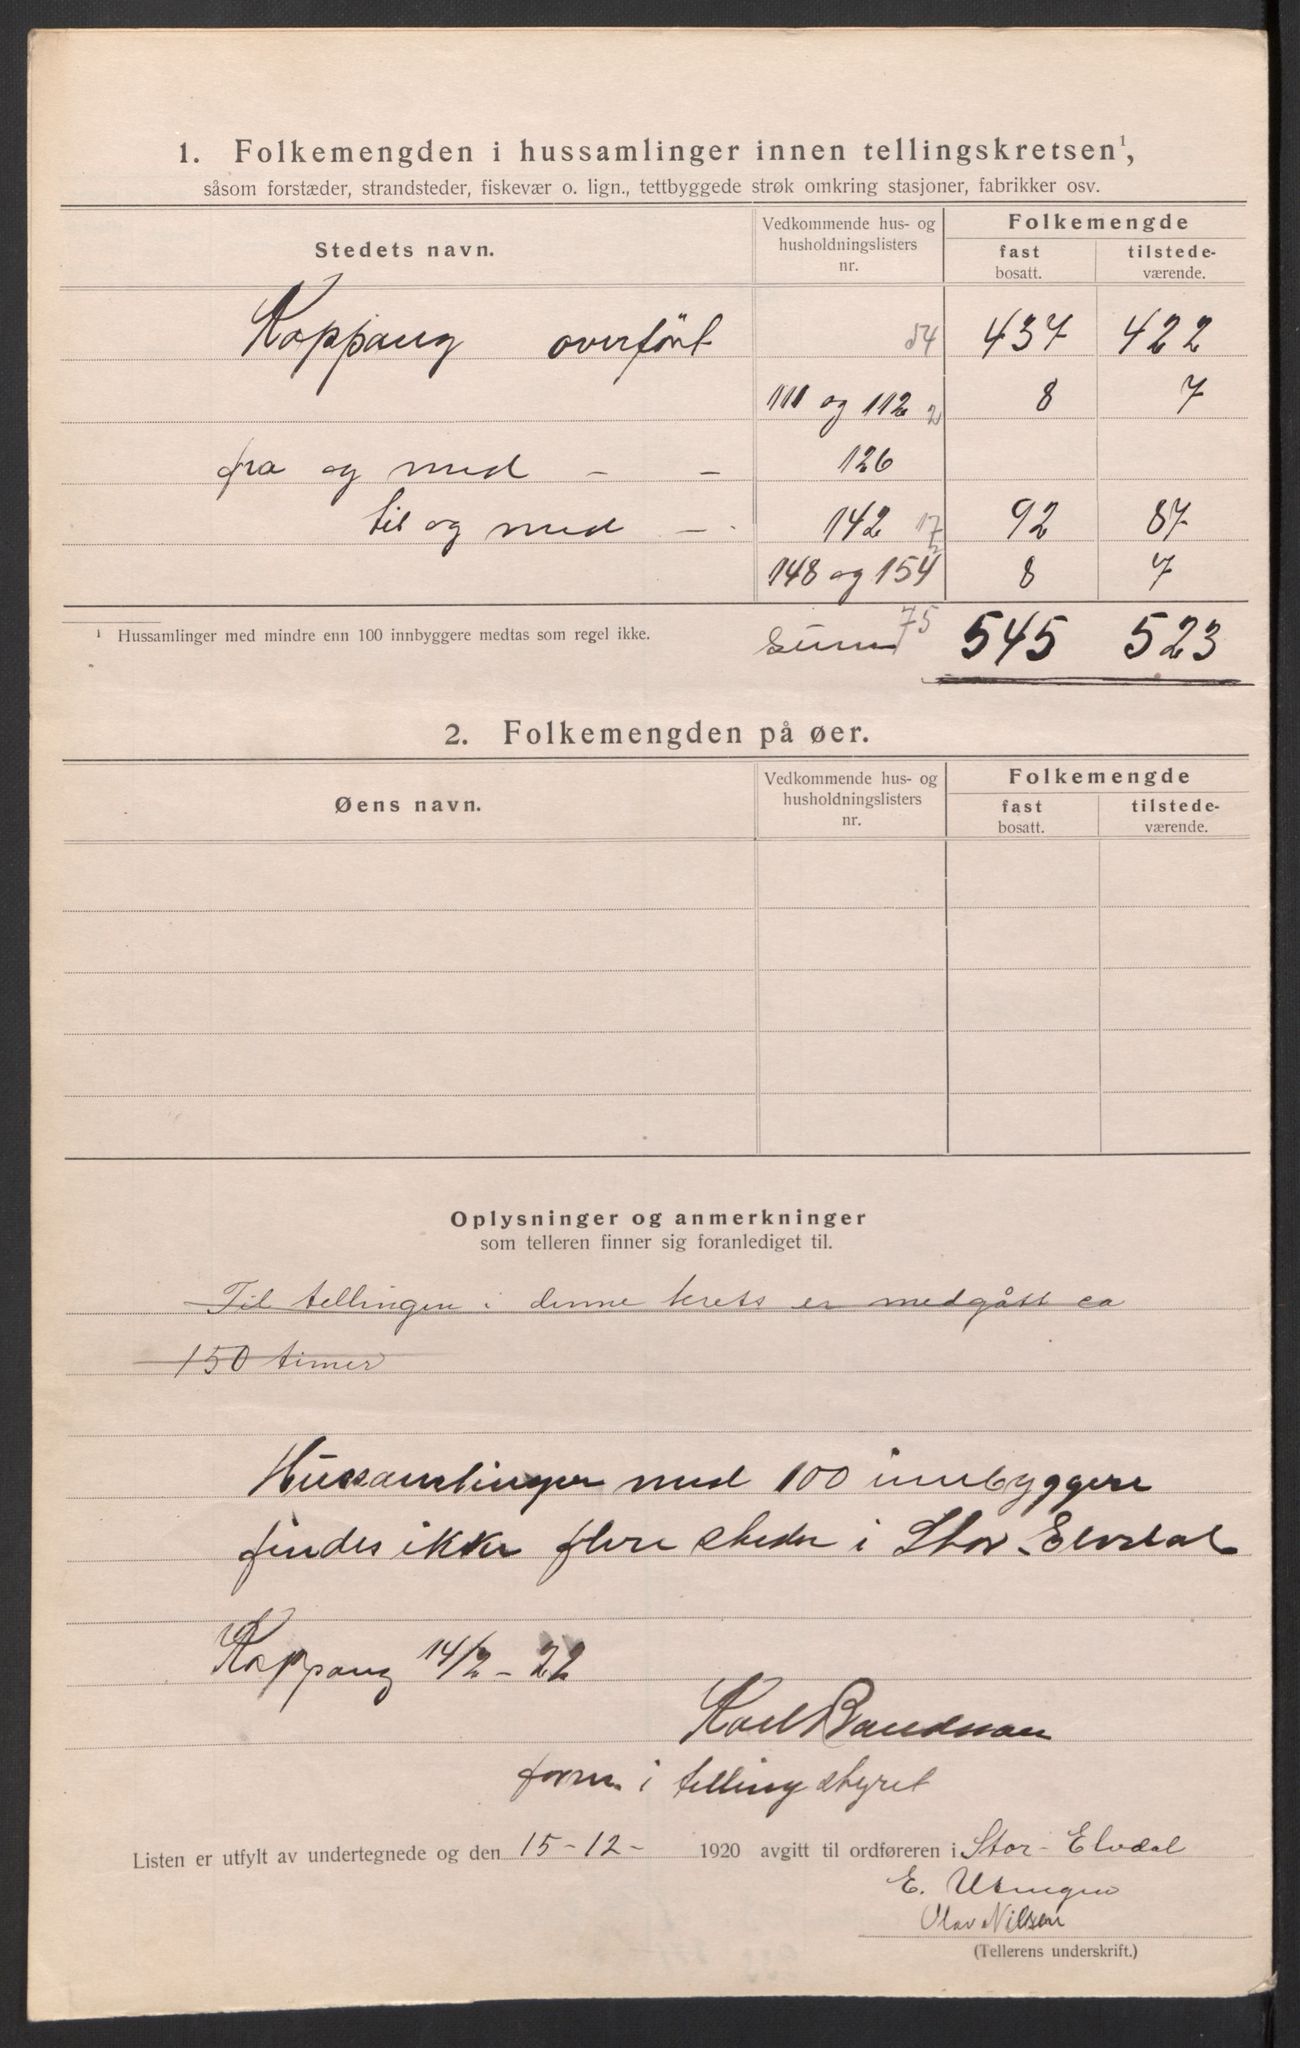 1. Folkemengden i hussamlinger innen tellingskretsen¹,
såsom forstæder, strandsteder, fiskevær o. lign., tettbyggede strøk omkring stasjoner, fabrikker osv.
Stedets navn.
Vedkommende hus- og
husholdningslisters
nr.
Folkemengde
fast
bosatt.
tilstede-
værende.
Koppang overført 54 437 422
111 og 112 2 8 7
fra og med - - 126
til og med - - 142 17 92 87
148 og 154 2 8 7
¹ Hussamlinger med mindre enn 100 innbyggere medtas som regel ikke.
Sum 75 545 523
2. Folkemengden på øer.
Øens navn.
Vedkommende hus- og
husholdningslisters
nr.
Folkemengde
fast
bosatt.
tilstede-
værende.
Oplysninger og anmerkninger
som telleren finner sig foranlediget til.
Til tellingen i denne krets er medgått ca
150 timer
Hussamlinger med 100 innbyggere
findes ikke flere steder i Stor-Elvdal
Koppang 14/2 - 22
Karl
form i tellingstyret
Listen er utfylt av undertegnede og den 15-12- 1920 avgitt til ordføreren i Stor-Elvdal
E.
Olav Nilsen
(Tellerens underskrift.)